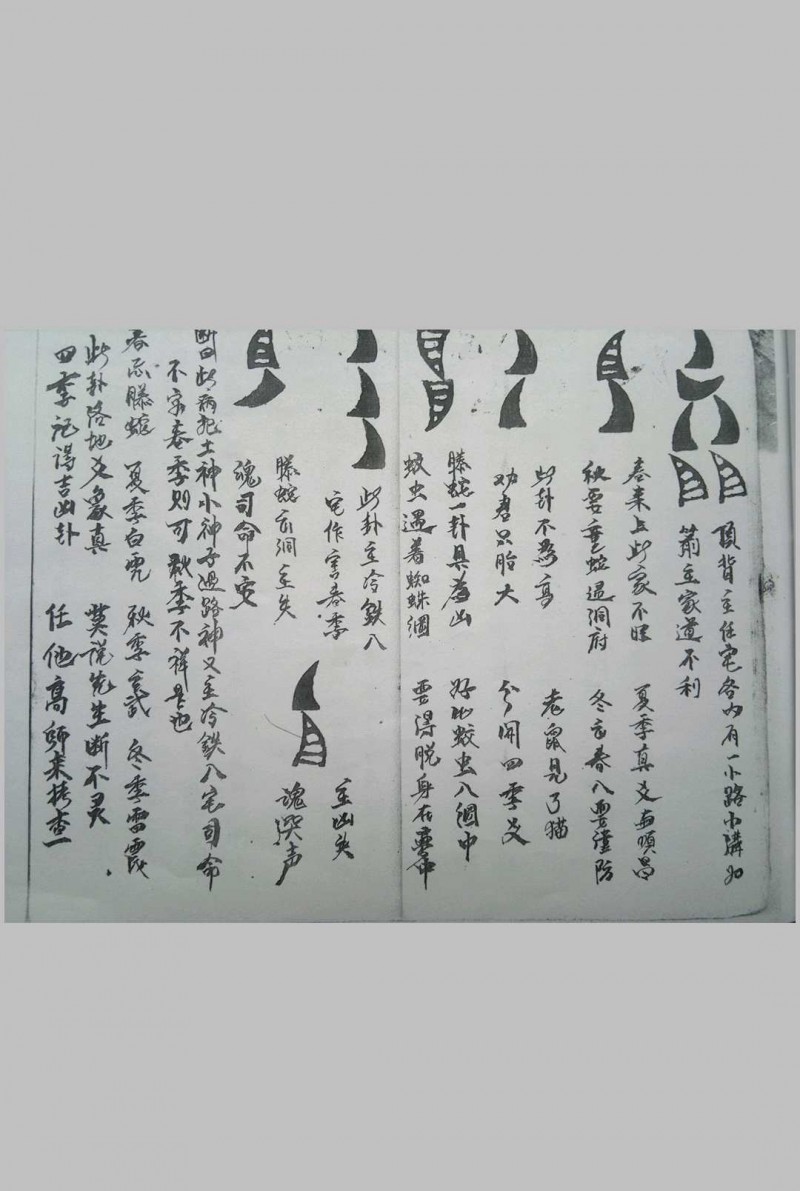 頂背主住宅各内有一小路小溝如
蕭主家道不利
春来占此家不旺 夏季真爻南順昌
秋要垂蛇過洞府 冬言春八要謹防
此卦不為高 老鼠見了猫
劝君只胎大 分開四季爻
螣蛇一卦具為凶 好比蛟虫八個中
蚊虫遇着蜘蛛網 要得脱身在雲中
此卦主冷鉄八
宅作害春季
主凶失
螣蛇玄洞主失 魂哭声
魂司命不安
断曰此病死土神小神子過路神又主冷鉄八宅司命
不宁春季則可 秋季不祥是也
春忌螣蛇 夏季白虎 秋季玄武 冬季雷霆
此卦落地爻象真 莫說先生断不灵
四季记得吉凶卦 任他高師来考查